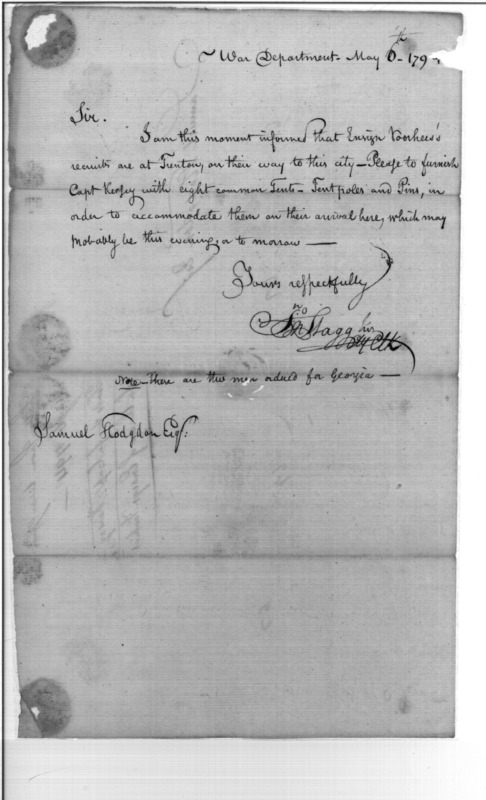 War Department May 6th 179
Sir.
I am this moment informed that Ensign Voorhees's
recruits are at Trenton, on their way to this city - Please to furnish
Capt Kersey with eight common Tents - Tent poles and Pins, in
order to accommodate them on their arrival here, which may
probably be this evening or to morrow -
Yours respectfully
Jno Stagg Junr
Note - these are the men ordered for Georgia -
Samuel Hodgdon Esqr.